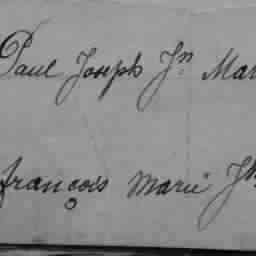 Paul Joseph Jn Mar
françois Marie Jh